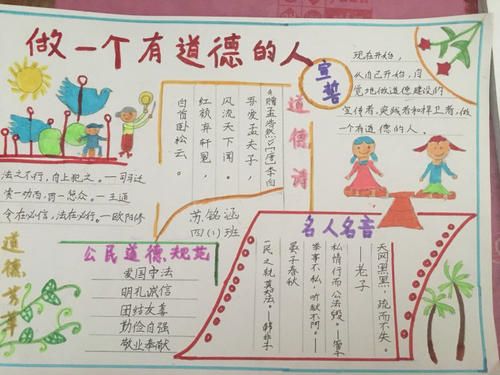 做一个有道德的人
宣誓
现在开始,
从自己开始,自
觉地做道德建设的
宣传者,实践者和捍卫者,做
一个有道德的人。
道德诗
《赠孟浩然》[唐]李白
吾爱孟夫子,
风流天下闻。
红颜弃轩冕,
白首卧松云。
苏铭涵
四(1)班
法之不行,自上犯之。——司马迁
赏一功而
——王通
令在必信,法在必行。——欧阳修
道德芳草
公民道德规范
爱国守法
明礼诚信
团结友善
勤俭自强
敬业奉献
名人名言
天网恢恢,疏而不失。
——老子
私情行而公法毁。——管子
举事不私,听狱不阿。——
晏子春秋
——韩非子